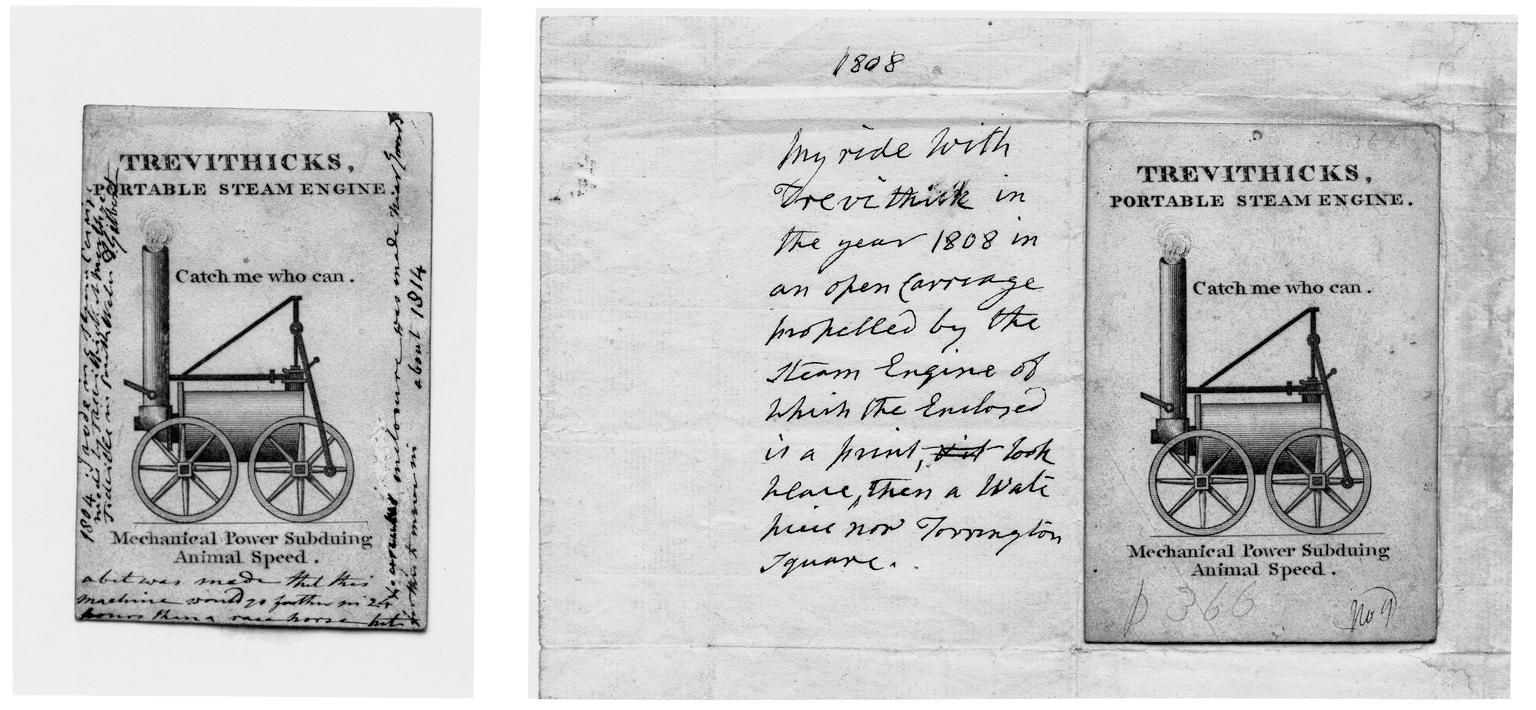 TREVITHICKS,
PORTABLE STEAM ENGINE.
Catch me who can.
Mechanical Power Subduing
Animal Speed.
a bet was made that this
machine would go further in 24
hours than a race horse
enclosure was made
about 1814
1804 I rode in
made by
1808
My ride with
Trevithick in
the year 1808 in
an open Carriage
propelled by the
Steam Engine of
which the Enclosed
is a print, took
place, then a Wate
piece now Torrington
Square.
TREVITHICKS,
PORTABLE STEAM ENGINE.
Catch me who can.
Mechanical Power Subduing
Animal Speed.
p 366
No 9